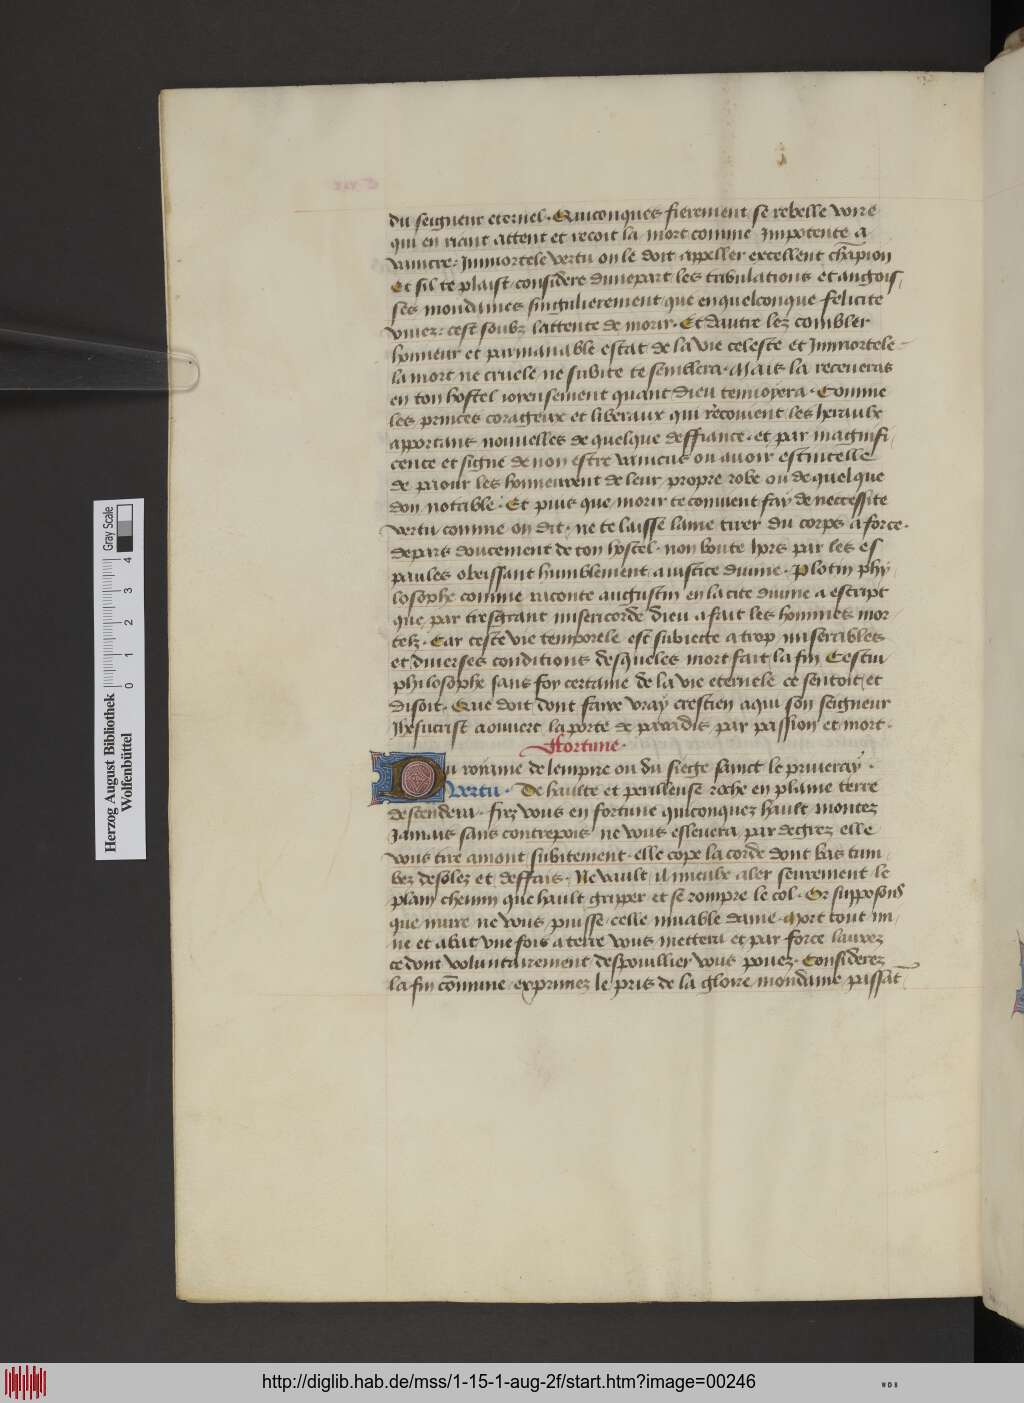 du seigneur eternel. Quiconques fierement se rebelle voire
qui en riant attent et recoit la mort comme Impotente a
vaincre: Immortele vertu on le doit appeller excellent chāpion
Et sil te plaist considere dunepart les tribulations et angois/
ses mondaines singulierement que enquelconque felicite
viuez: cest soubz lattente de morir. Et dautre lez combler
honneur et parmanable estat de la vie celeste et Immortele
la mort ne cruele ne subite te semblera. Mais la receueras
en ton hostel ioyeusement quant dieu tenuoyera. Comme
les princes corageux et liberaux qui recoiuent les heraulx
apportans nouuelles de quelque deffiance. et par magnifi/
cence et signe de non estre vaincus ou auoir estincelle
de paour les honneurent de leur propre robe ou de quelque
don notable. Et puis que morir te conuient fay de necessite
vertu comme on dit. ne te laisse lame tirer du corps a force.
depars doucement de ton hostel. non boute hors par les es
paules obeissant humblement a iustice diuine. Plotin phy/
losophe comme raconte augustin en la cite diuine a escript
que par tresgrant misericorde dieu a fait les hommes mor
telz. Car ceste vie temporele est subiecte a trop miserables
et diuerses conditions desqueles mort fait la fin. Cestui
philosophe sans foy certaine de la vie eternele ce sentoit et
disoit. Que doit dont faire vray crestien aqui son seigneur
Jhesucrist a ouuert la porte de paradis par passion et mort.
Fortune.
Du roiame de lempire ou du siege sainct le priueray.
Vertu. De haulte et perilleuse roche en plaine terre
descendera. fiez vous en fortune quiconquez hault montez
Jamais sans contrepois ne vous esleuera par degrez elle
vous tire amont subitement. elle cope la corde dont bas tum/
bez desolez et deffais. Ne vault il mieulx aler seurement le
plain chemin que hault gripper et se rompre le col. Or supposons
que nuire ne vous puisse celle muable dame. Mort tout mi/
ne et abat vne fois a terre vous mettera et par force laurez
ce dont voluntairement despouillier vous pouez. Considerez
la fin cōmune exprimez le pris de la gloire mondaine passāt
Herzog August Bibliothek
Wolfenbüttel
0 1 2 3 4
Gray Scale
http://diglib.hab.de/mss/1-15-1-aug-2f/start.htm?image=00246
WDB